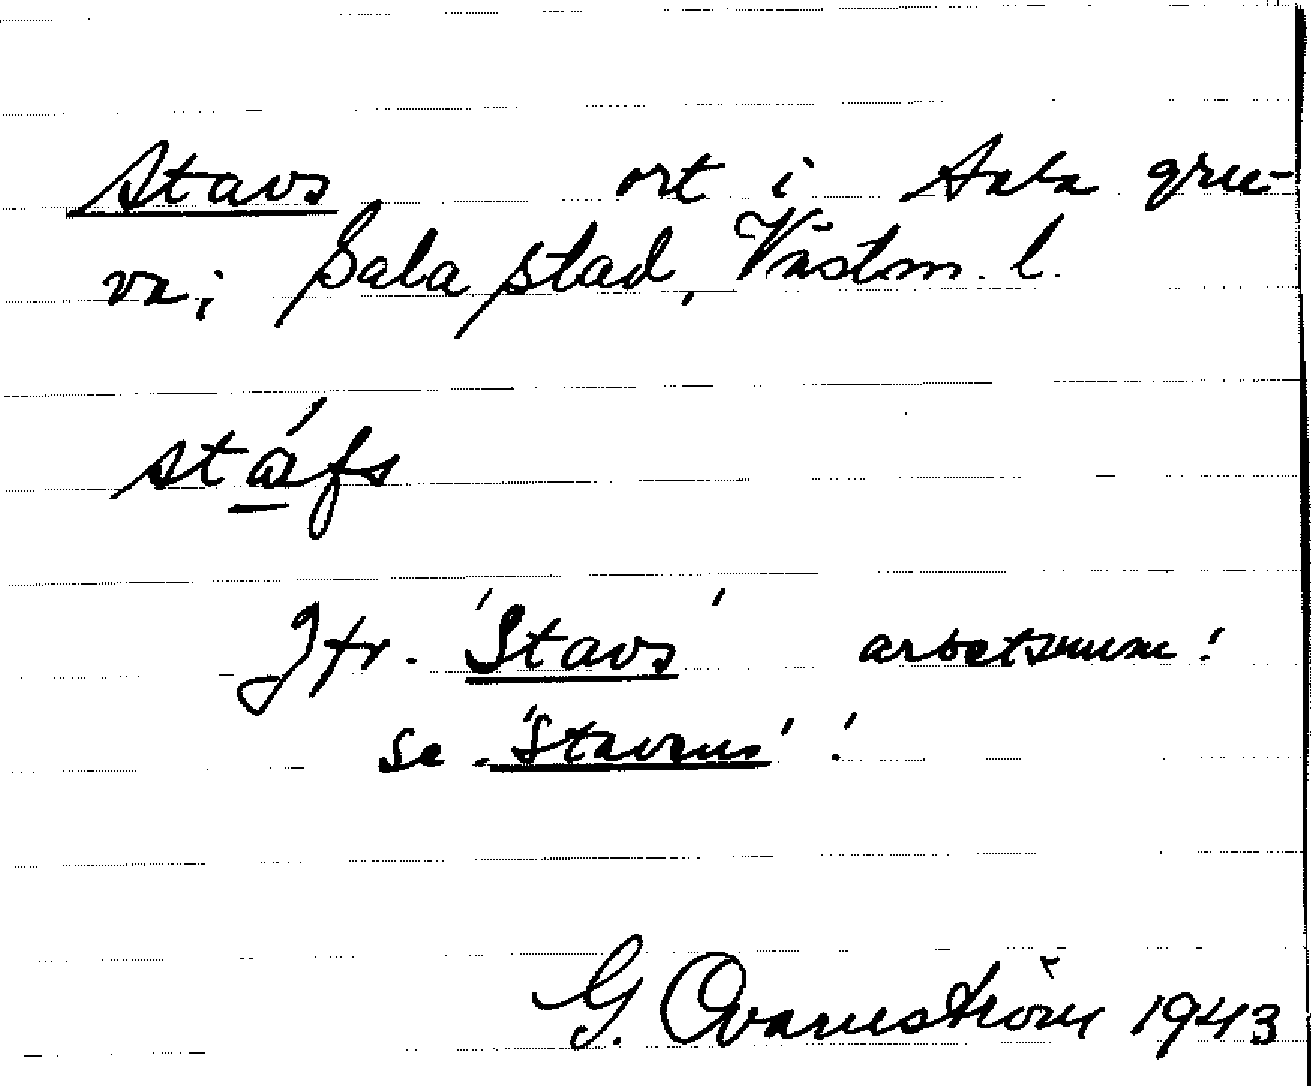 Stavs ort i Sala gru-
va; Sala stad, Västm. l.
stáfs
Jfr. 'Stavs' arbetsrum!
se 'Stavrus'!
G. Qvarnström 1943